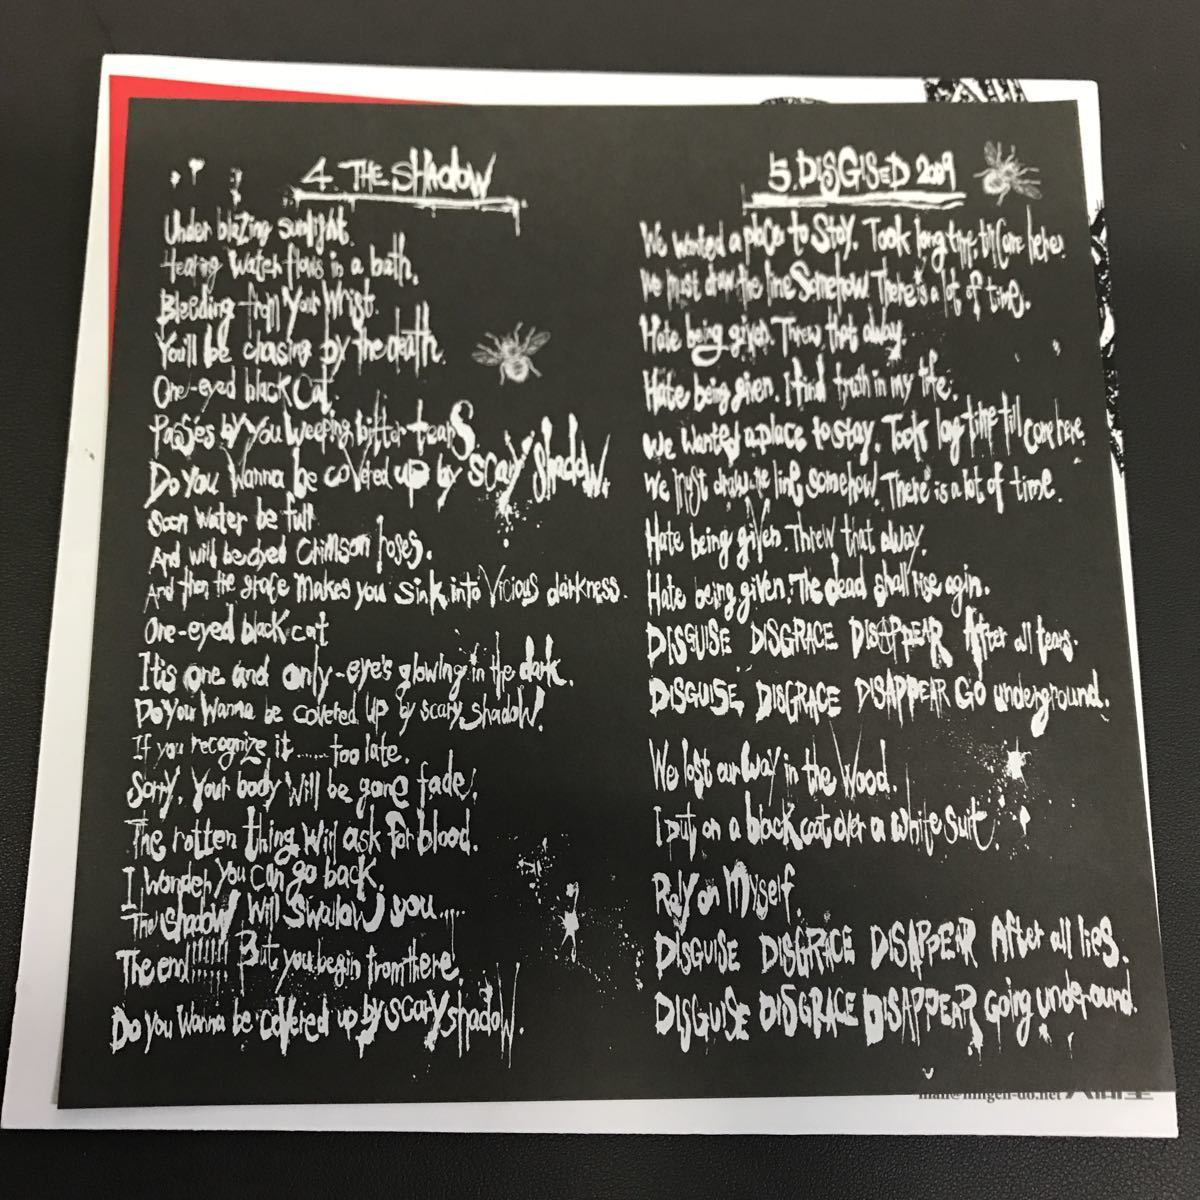 4. THE SHADOW
Under blazing sunlight.
Hearing Water flows in a bath.
Bleeding from Your Wrist.
You'll be chasing by the death.
One-eyed black Cat.
Passes by you weeping bitter tears.
Do you Wanna be coVered up by scary shadow.
Soon water be full
And will be dyed Crimson roses.
And then the grace makes you sink into Vicious darkness.
One-eyed black cat
It is one and only-eye's glowing in the dark.
Do you Wanna be covered up by scary shadow.
If you recognize it...... too late.
Sorry, Your body Will be gone fade.
The rotten thing Will ask for blood.
I Wonder you can go back.
The shadow Will swallow you....
The end!!!!!! But you begin from there.
Do you Wanna be coVered up by scary shadow.
5. DISGISED 2009
We wanted a place to Stay. Took long time till Came here.
We must draw the line Somehow. There is a lot of time.
Hate being given. Threw that away.
Hate being given. I find truth in my life.
We wanted a place to stay. Took long time till come here.
We must draw the line somehow. There is a lot of time.
Hate being giVen. Threw that away.
Hate being giVen. The dead shall rise agin.
DISGUISE DISGRACE DISAPPEAR After all tears.
DISGUISE DISGRACE DISAPPEAR Go underground.
We lost our way in the Wood.
I put on a black coat over a white suit.
Rely on Myself.
DISGUISE DISGRACE DISAPPEAR After all lies.
DISGUISE DISGRACE DISAPPEAR Going underound.
mail@ningen-do.net